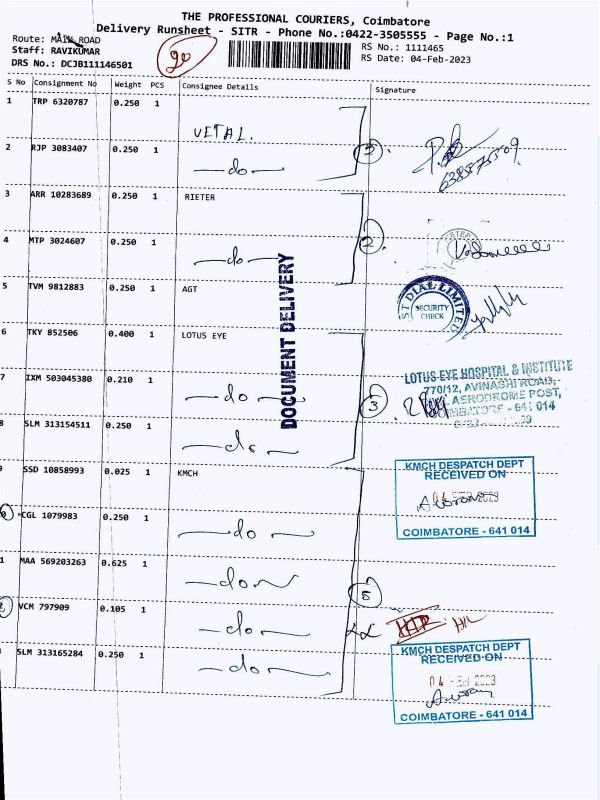 THE PROFESSIONAL COURIERS, Coimbatore
Delivery Runsheet - SITR - Phone No.:0422-3505555 - Page No.:1
Route: MAIN ROAD
Staff: RAVIKUMAR
DRS No.: DCJB111146501
20
RS No.: 1111465
RS Date: 04-Feb-2023
S No Consignment No Weight PCS Consignee Details Signature
1 TRP 6320787 0.250 1 VITAL.
2 RJP 3083407 0.250 1 —do—
3 ARR 10283689 0.250 1 RIETER
4 MTP 3024607 0.250 1 —do— 2
5 TVM 9812883 0.250 1 AGT
DIAL LIMITED
SECURITY CHECK
DOCUMENT DELIVERY
6 TKY 852506 0.400 1 LOTUS EYE
7 IXM 503045380 0.210 1 —do— 3
LOTUS EYE HOSPITAL & INSTITUTE
770/12, AVINASHI ROAD,
AERODROME POST,
- 641 014
8 SLM 313154511 0.250 1 —do—
SSD 10858993 0.025 1 KMCH
KMCH DESPATCH DEPT
RECEIVED ON
COIMBATORE - 641 014
CGL 1079983 0.250 1 —do—
MAA 569203263 0.625 1 —do— 5
VCM 797909 0.105 1 —do—
SLM 313165284 0.250 1 —do—
KMCH DESPATCH DEPT
RECEIVED ON
04 FEB 2023
COIMBATORE - 641 014